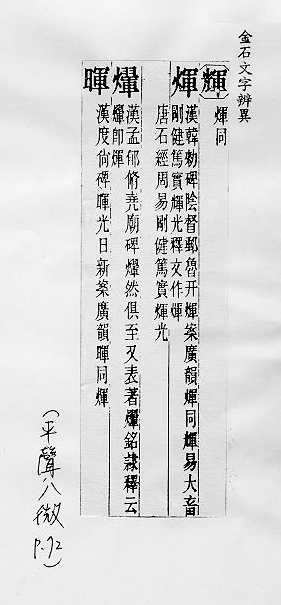 金石文字辨異
輝 煇同
煇 漢韓勑碑陰督郵魯开煇案廣韻煇同輝易大畜
剛健篤實輝光釋文作煇
唐石經周易剛健篤實煇光
㷸 漢孟郁脩堯廟碑㷸然俱至又表著㷸銘隸釋云
㷸即煇
暉 漢度尚碑暉光日新案廣韻暉同煇
(平聲八微
P.92)